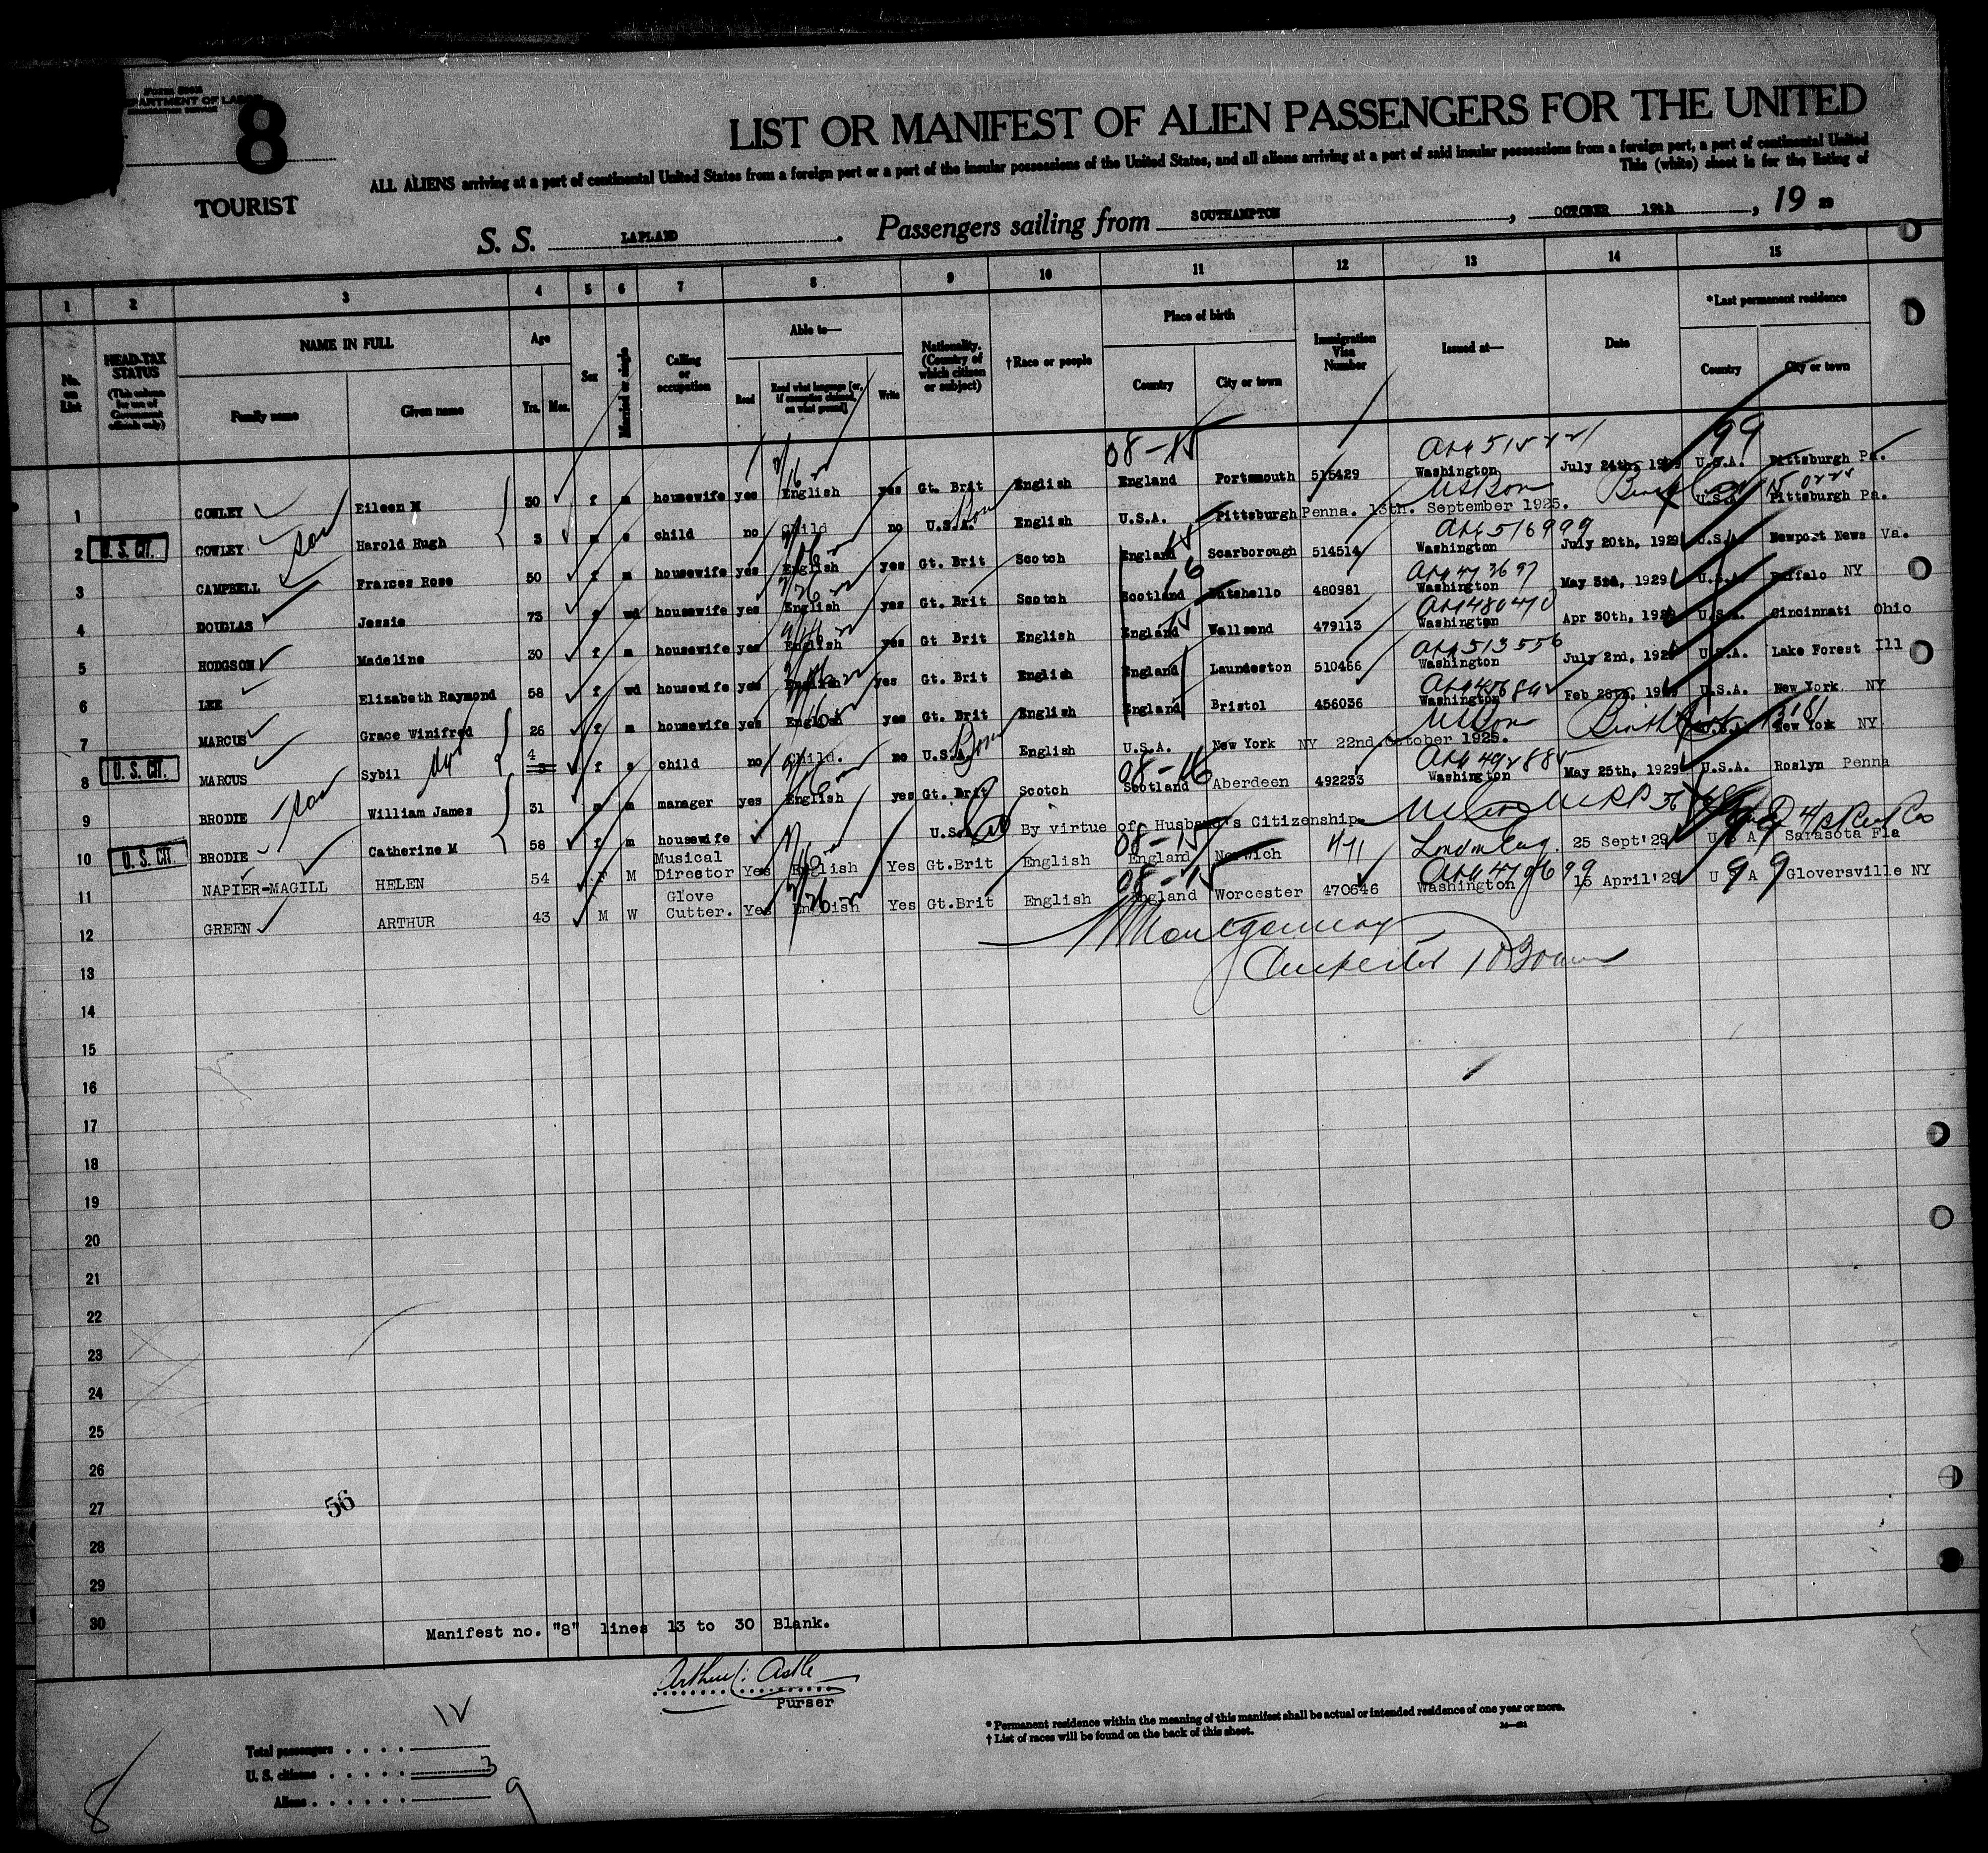 Form 500B
DEPARTMENT OF LABOR
IMMIGRATION SERVICE
8
TOURIST
LIST OR MANIFEST OF ALIEN PASSENGERS FOR THE UNITED
ALL ALIENS arriving at a port of continental United States from a foreign port or a port of the insular possessions of the United States, and all aliens arriving at a port of said insular possessions from a foreign port, a port of continental United
This (white) sheet is for the listing of
S. S. LAPLAND. Passengers sailing from SOUTHAMPTON, OCTOBER 19th, 19 29
1 2 3 4 5 6 7 8 9 10 11 12 13 14 15
No. on List
HEAD-TAX STATUS (This column for use of Government officials only)
NAME IN FULL Family name Given name
Age Yrs. Mos.
Sex
Married or single
Calling or occupation
Able to— Read Read what language [or, if exemption claimed, on what ground] Write
Nationality. (Country of which citizen or subject)
†Race or people
Place of birth Country City or town
Immigration Visa Number
Issued at—
Date
*Last permanent residence Country City or town
08-15 99
1 COWLEY Eileen M 30 f m housewife yes English yes Gt. Brit English England Portsmouth 515429 Washington July 24th, 1929 U.S.A. Pittsburgh Pa.
2 U. S. CIT. COWLEY son Harold Hugh 3 m s child no Child no U.S.A. Born English U.S.A. Pittsburgh Penna. 13th. September 1925. US Born U.S.A. Pittsburgh Pa.
3 CAMPBELL Frances Rose 50 f m housewife yes English yes Gt. Brit Scotch England 15 Scarborough 514514 516999 Washington July 20th, 1929 U.S.A. Newport News Va.
4 DOUGLAS Jessie 73 f wd housewife yes English yes Gt. Brit Scotch Scotland 16 480981 473697 Washington May 3rd, 1929 U.S.A. Buffalo NY
5 HODGSON Madeline 30 f m housewife yes English yes Gt Brit English England 15 Wallsend 479113 480410 Washington Apr 30th, 1929 U.S.A. Cincinnati Ohio
6 LEE Elizabeth Raymond 58 f wd housewife yes English yes Gt. Brit English England Launceston 510466 513556 Washington July 2nd, 1929 U.S.A. Lake Forest Ill
7 MARCUS Grace Winifred 26 f m housewife yes English yes Gt. Brit English England Bristol 456036 Washington Feb 28th, 1929 U.S.A. New York. NY
8 U. S. CIT. MARCUS Sybil 4 3 f s child no Child. no U.S.A. Born English U.S.A. New York NY 22nd. October 1925. US Born U.S.A. New York NY
9 BRODIE William James 31 m m manager yes English yes Gt. Brit Scotch 08-16 Scotland Aberdeen 492233 492885 Washington May 25th, 1929 U.S.A. Roslyn Penna
10 U. S. CIT. BRODIE Catherine M 58 f m housewife U.S.A. By virtue of Husband's Citizenship.
11 NAPIER-MAGILL HELEN 54 F M Musical Director Yes English Yes Gt.Brit English 08-15 England Norwich 471 London Eng. 25 Sept'29 U S A 99 Sarasota Fla
12 GREEN ARTHUR 43 M W Glove Cutter. Yes English Yes Gt.Brit English 08-15 England Worcester 470646 Washington 15 April'29 U S A 99 Gloversville NY
Montgomery
13
14
15
16
17
18
19
20
21
22
23
24
25
26
27
56
28
29
30
Manifest no. "8" lines 13 to 30 Blank.
Arthur C. Castle
Purser
* Permanent residence within the meaning of this manifest shall be actual or intended residence of one year or more.
† List of races will be found on the back of this sheet.
Total passengers . . . . 12
U. S. citizens . . . . . 3
Aliens . . . . . . 9
8